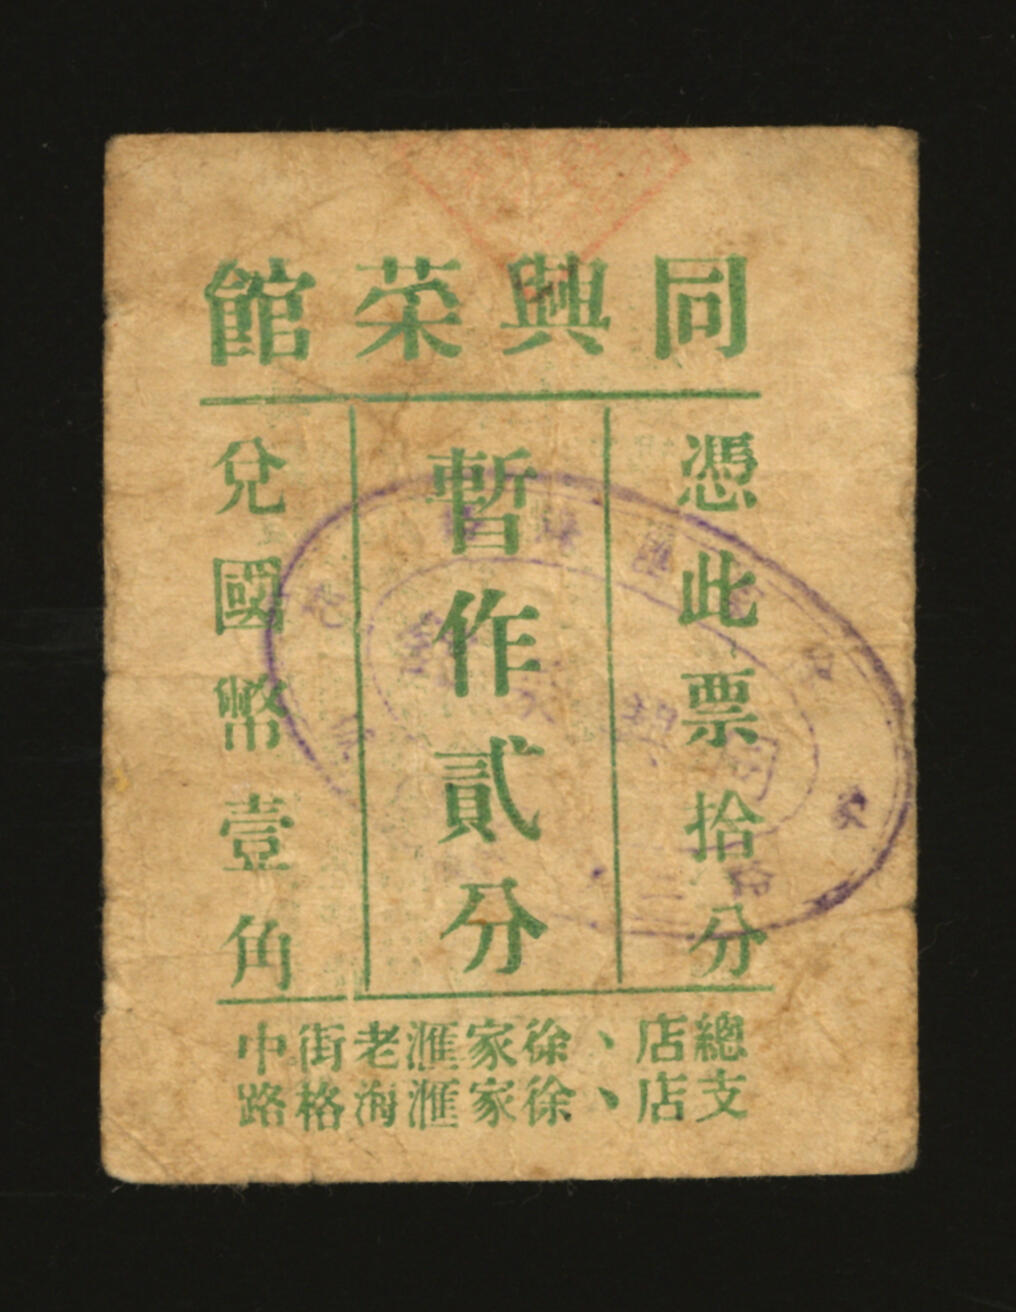 同興菜館
憑此票拾分
暫作貳分
兌國幣壹角
總店、徐家滙老街中
支店、徐家滙海格路